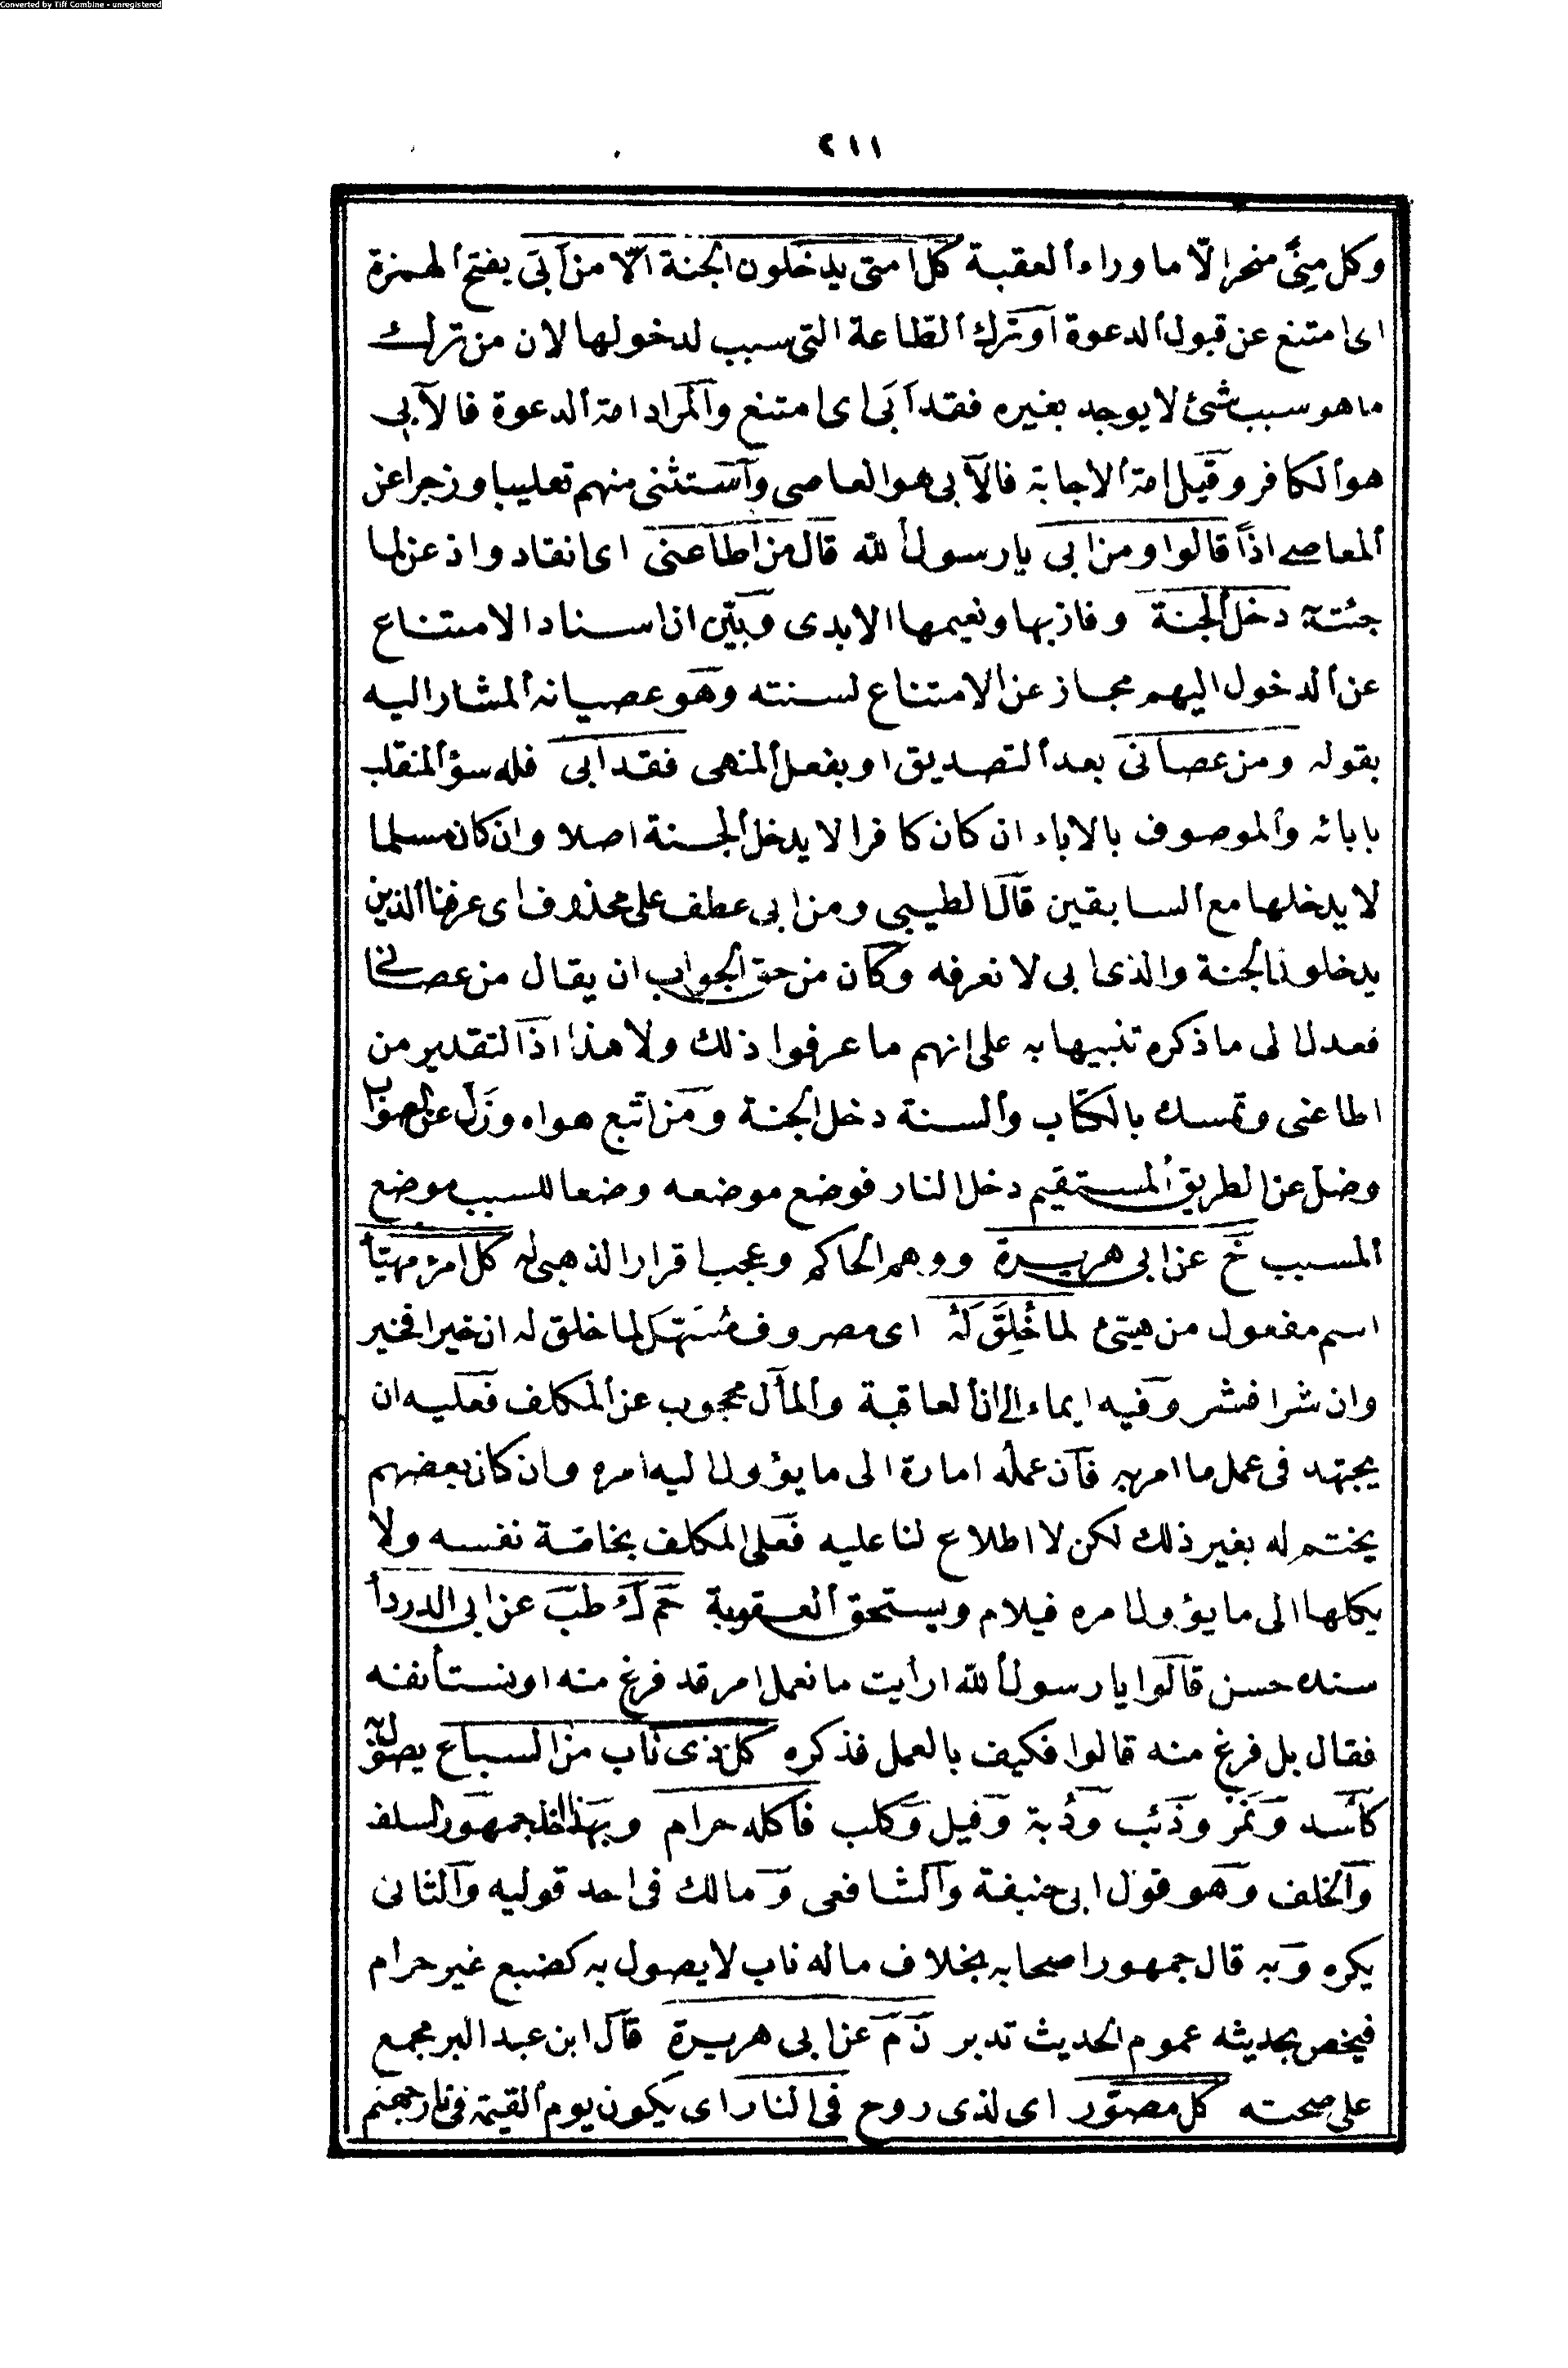 Converted by Tiff Combine - unregistered
٢١١
وكل منى منحر الّا ما وراء العقبة كل امتى يدخلون الجنة الّا من أبى بفتح الهمزة
اى امتنع عن قبول الدعوة او ترك الطاعة التى سبب لدخولها لان من ترك
ما هو سبب شئ لا يوجد بغيره فقد أبى اى امتنع والمراد امة الدعوة فالآبى
هو الكافر وقيل امة الاجابة فالآبى هو العاصى واستثنى منهم تغليبا وزجرا عن
المعاصى اذًا قالوا ومن ابى يا رسول الله قال من اطاعنى اى انقاد واذعن لما
جئته دخل الجنة وفاز بها ونعيمها الابدى وبيّن ان اسناد الامتناع
عن الدخول اليهم مجاز عن الامتناع لسنته وهو عصيانه المشار اليه
بقوله ومن عصانى بعد التصديق او بفعل المنهى فقد ابى فله سؤ المنقلب
بابائه والموصوف بالاباء ان كان كافرا لا يدخل الجنة اصلا وان كان مسلما
لا يدخلها مع السابقين قال الطيبى ومن ابى عطف على محذوف اى عرفنا الذين
يدخلون الجنة والذى ابى لا نعرفه وكان من حق الجواب ان يقال من عصانى
فعدل الى ما ذكره تنبيها به على انهم ما عرفوا ذلك ولا هذا اذ التقدير من
اطاعنى وتمسك بالكتاب والسنة دخل الجنة ومن اتبع هواه وزل عن الصواب
وضل عن الطريق المستقيم دخل النار فوضع موضعه وضعا للسبب موضع
المسبب خ عن ابى هريرة ووهم الحاكم وعجب اقرار الذهبى له كل امرء مهيّأ
اسم مفعول من هيئ لما خُلِقَ لَهُ اى مصروف مُسَهَّل لما خلق له ان خيرا فخير
وان شرا فشر وفيه ايماء الى ان العاقبة والمآل محجوب عن المكلف فعليه ان
يجتهد فى عمل ما امر به فان عمله امارة الى ما يؤول اليه امره وان كان بعضهم
يختم له بغير ذلك لكن لا اطلاع لنا عليه فعلى المكلف بخاصة نفسه ولا
يكلها الى ما يؤول امره فيلام ويستحق العقوبة حم ك طب عن ابى الدرداء
سنده حسن قالوا يا رسول الله ارأيت ما نعمل امر قد فرغ منه او نستأنفه
فقال بل فرغ منه قالوا فكيف بالعمل فذكره كل ذى ناب من السباع يصول به
كأسد ونمر وذئب ودُبة وفيل وكلب فاكله حرام وبهذا اخذ جمهور السلف
والخلف وهو قول ابى حنيفة والشافعى ومالك فى احد قوليه والثانى
يكره وبه قال جمهور اصحابه بخلاف ما له ناب لا يصول به كضبع غير حرام
فيخص بحديثه عموم الحديث تدبر ن م عن ابى هريرة قال ابن عبد البر مجمع
على صحته كل مصور اى لذى روح فى النار اى يكون يوم القيمة فى نار جهنم